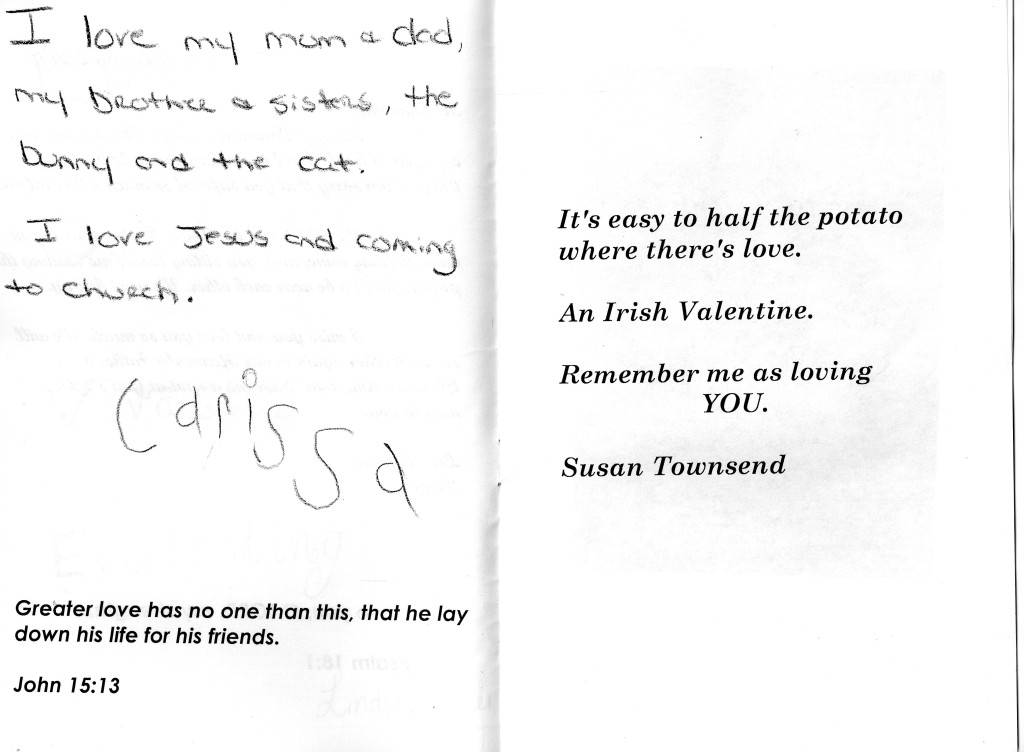 I love my mom & dad,
my brother & sisters, the
bunny and the cat.
I love Jesus and coming
to church.
Carissa
Greater love has no one than this, that he lay
down his life for his friends.
John 15:13
It's easy to half the potato
where there's love.
An Irish Valentine.
Remember me as loving
YOU.
Susan Townsend